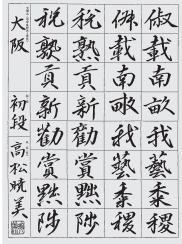 俶載南畝我藝黍稷
俶載南畝我藝黍稷
税熟貢新勸賞黜陟
税熟貢新勸賞黜陟
大阪 初段 高松暁美